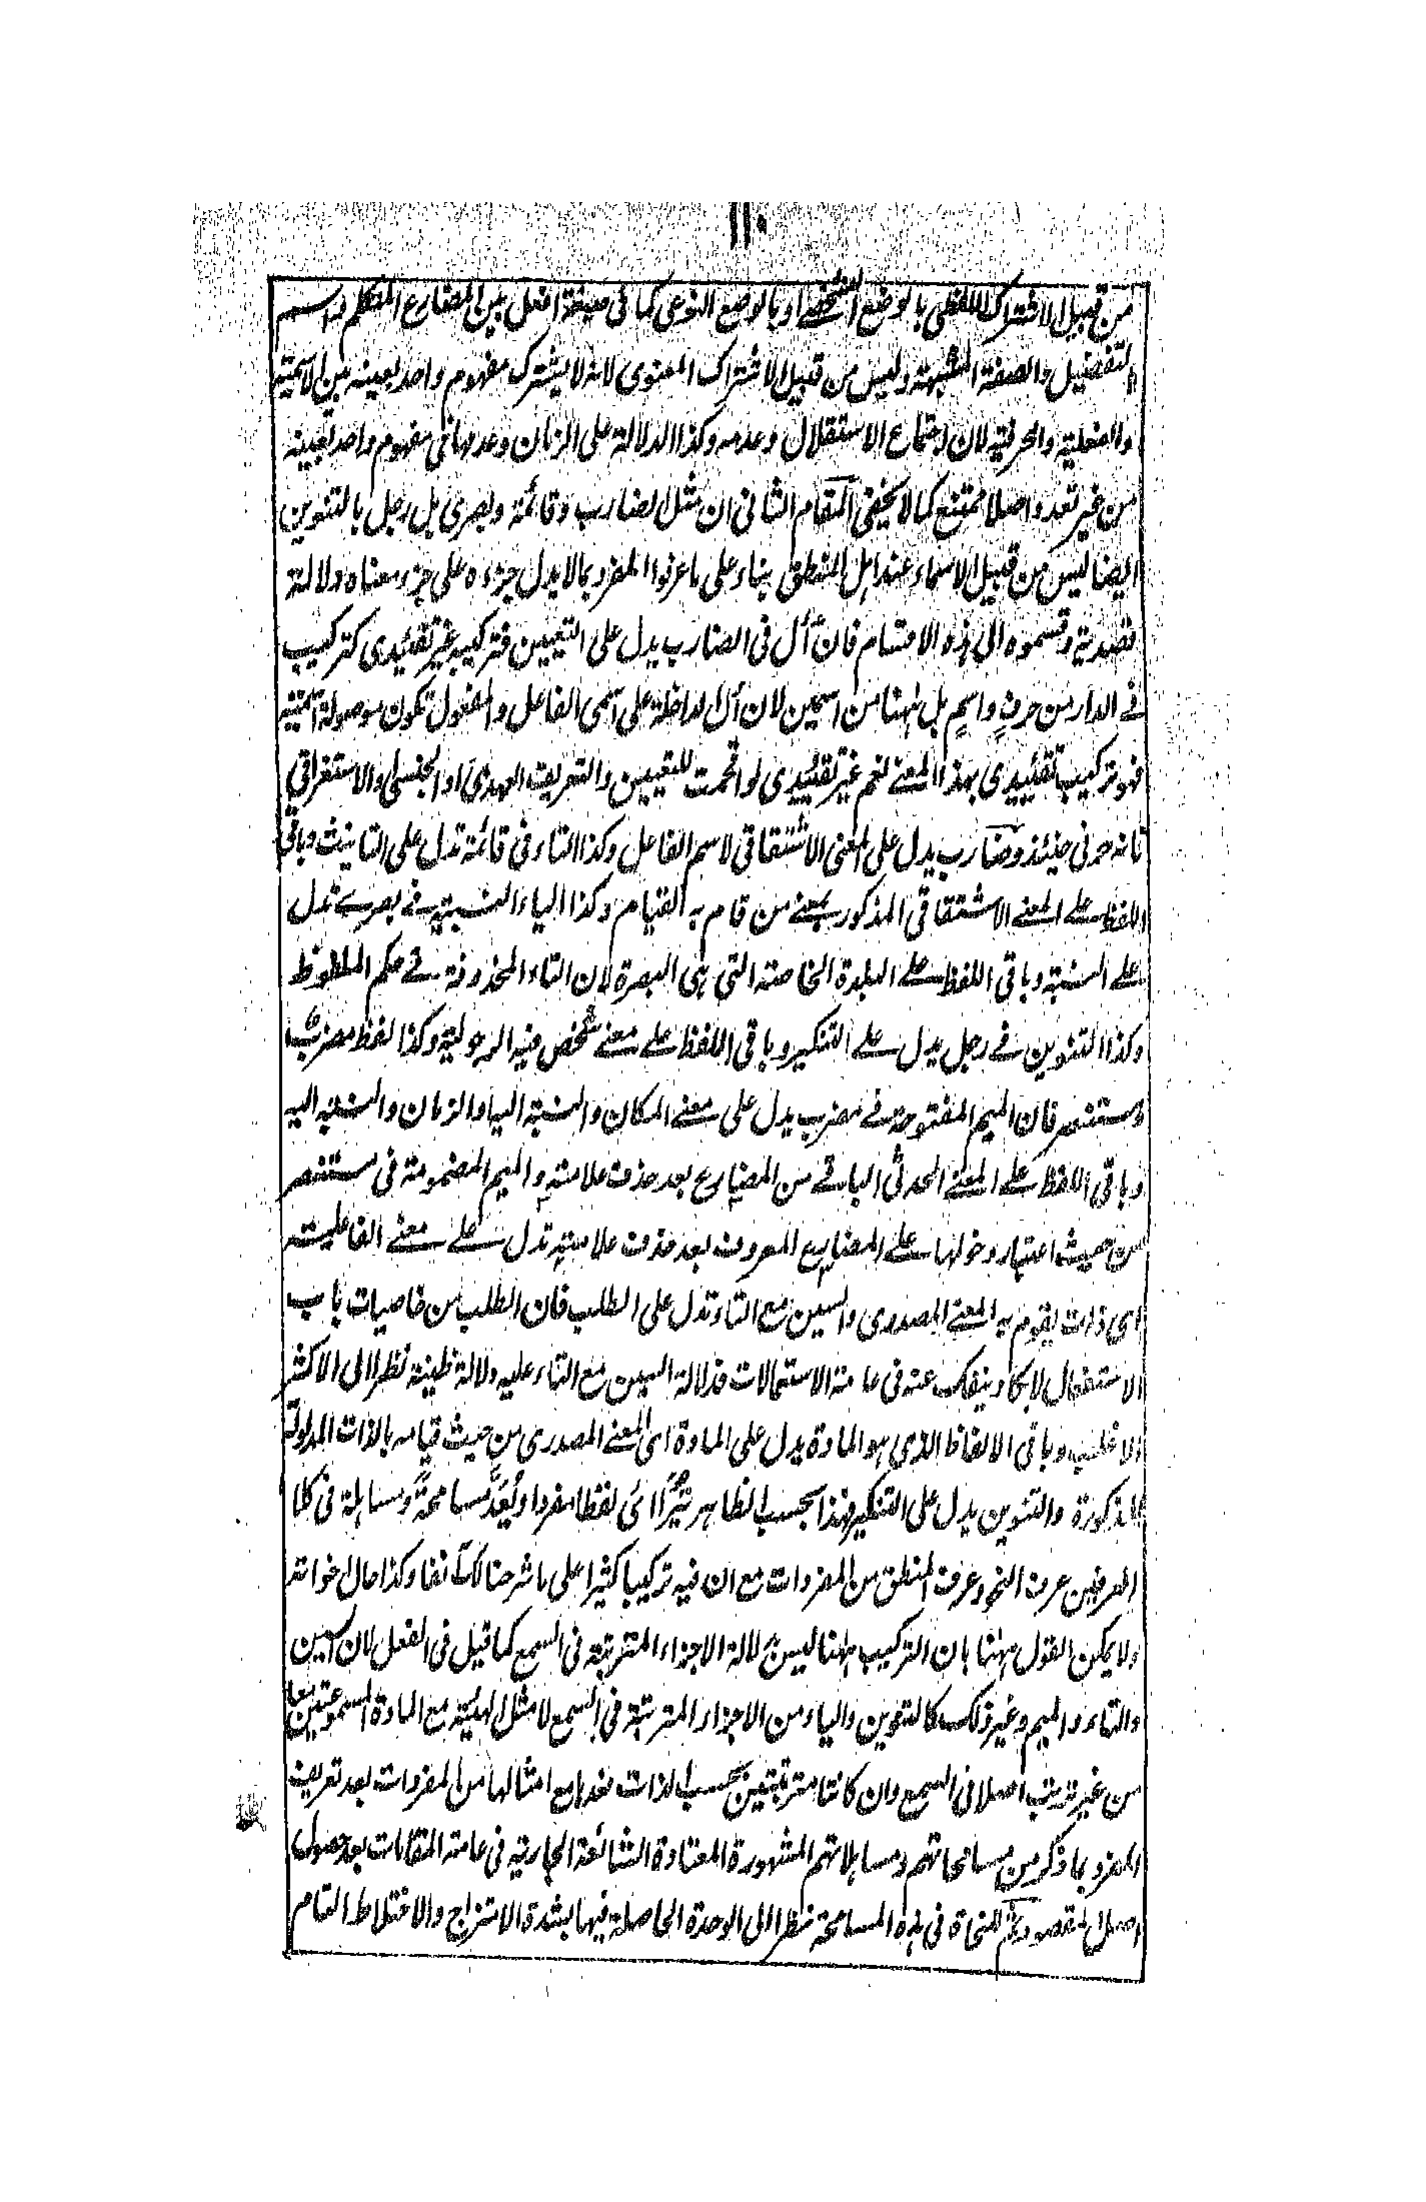 ١١٠
من قبيل الاشتراك اللفظي بالوضع الشخصي او بالوضع النوعي كما في صيغة افعل بين المضارع المتكلم واسم
التفضيل والصفة المشبهة وليس من قبيل الاشتراك المعنوى لانه لا يشترك مفهوم واحد بعينه بين الاسمية
والفعلية والحرفية لان اجتماع الاستقلال وعدمه وكذا الدلالة على الزمان وعدمها في مفهوم واحد بعينه
من غير تعدد اصلا ممتنع كما لا يخفى المقام الثاني ان مثل الضارب وقائمة وبصرى بل رجل بالتنوين
ايضا ليس من قبيل الاسماء عند اهل المنطق بناء على ما عرفوا المفرد بما لا يدل جزءه على جزء معناه دلالة
قصدية وقسموه الى هذه الاقسام فان أل في الضارب يدل على التعيين فتركيبه غير تقئيدى كتركيب
في الدار من حرفٍ واسمٍ بل ههنا من اسمين لان أل الداخلة على اسمى الفاعل والمفعول تكون موصولة اسمية
فهو تركيب تقئيدى بهذا المعنى نعم غير تقئيدى لو اقحمت للتعيين والتعريف العهدى او الجنسى والاستغراقي
فانه حرفي حينئذ وضارب يدل على المعنى الاشتقاقي لاسم الفاعل وكذا التاء في قائمة تدل على التانيث وباقي
اللفظ على المعنى الاشتقاقي المذكور بمعنى من قام به القيام وكذا الياء النسبتية في بصرى تدل
على النسبة وباقي اللفظ على البلدة الخاصة التي هي البصرة لان التاء المحذوفة في حكم الملفوظ
وكذا التنوين في رجل يدل على التنكير وباقي اللفظ على معنى شخص فيه الرجولية وكذا لفظ مضربٌ
ومستنصر فان الميم المفتوحة في مضرب يدل على معنى المكان والنسبة اليه او الزمان والنسبة اليه
وباقي اللفظ على المعنى الحدثى الباقي من المضارع بعد حذف علامته والميم المضمومة في مستنصر
من حيث اعتبار دخولها على المضارع المعروف بعد حذف علامته تدل على معنى الفاعلية
اى ذات يقوم به المعنى المصدرى والسين مع التاء تدل على الطلب فان الطلب من خاصيات باب
الاستفعال لا يكاد ينفك عنه في عامة الاستعمالات فدلالة السين مع التاء عليه دلالة ظنية نظرا الى الاكثر
الاغلب وباقي الالفاظ الذى هو المادة يدل على المادة اى المعنى المصدرى من حيث قيامه بالذات المدلولة
المذكورة والتنوين يدل على التنكير فهذا بحسب الظاهر اى لفظا مفردا ويُعَدُّ مسامحةً ومساهلة في كلا
العرفين عرف النحو وعرف المنطق من المفردات مع ان فيه تركيبا كثيرا على ما شرحنا لك آنفا وكذا حال اخواته
ولا يمكن القول ههنا بان التركيب ههنا ليس بدلالة الاجزاء المترتبة في السمع كما قيل في الفعل لان السين
والتاء والميم وغير ذلك كالتنوين والياء من الاجزاء المترتبة في السمع لا مثل الهيئة مع المادة المسموعتين معا
من غير ترتب اصلا في السمع وان كانتا مترتبتين بحسب الذات فعد مع امثالها من المفردات بعد تعريف
المفرد بما ذكر من مسامحاتهم ومساهلاتهم المشهورة المعتادة الشائعة الجارية في عامة المقامات بعد حصول
اصل المقصود للنحاة في هذه المسامحة نظرا الى الوحدة الحاصلة فيها بشدة الامتزاج والاختلاط التام